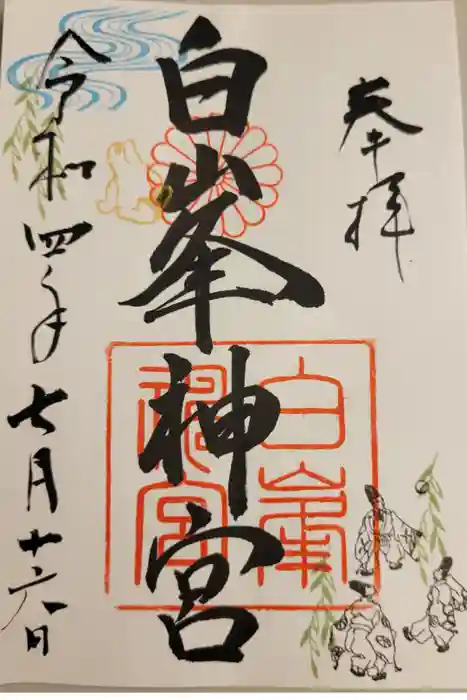 奉拝
白峯神宮
白峯
神宮
令和四年七月十六日